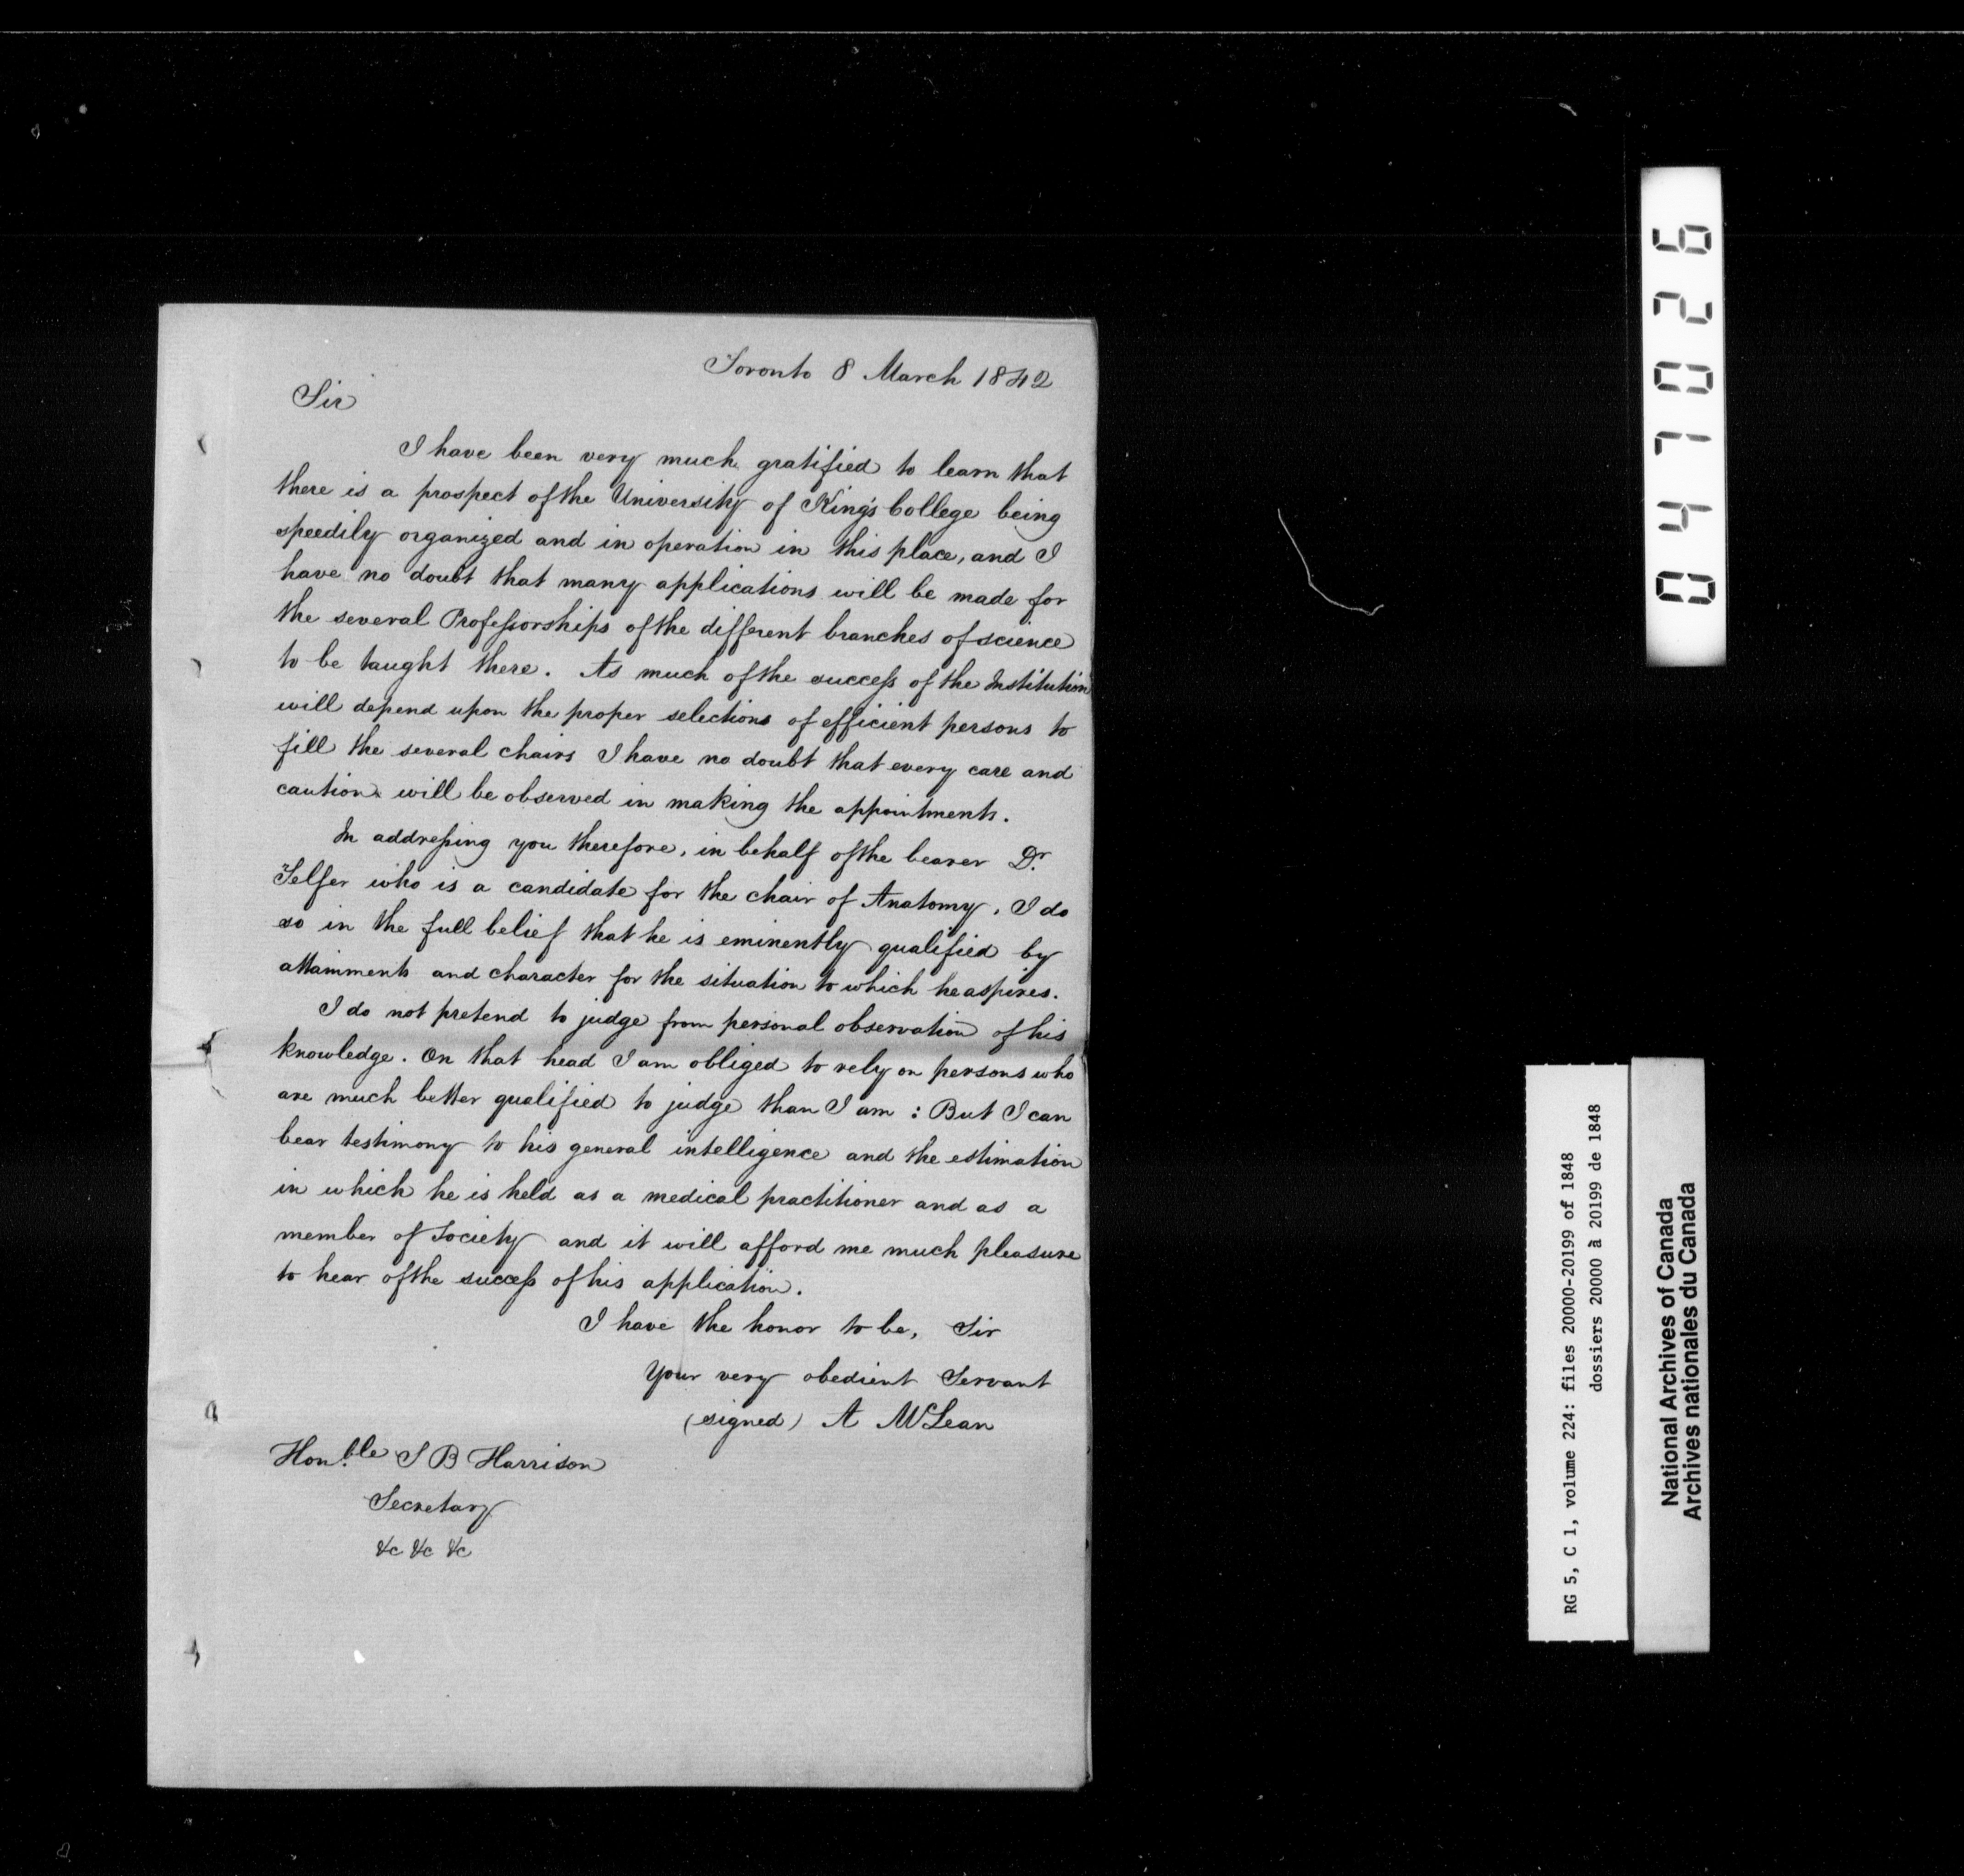 Toronto 8 March 1842
Sir
I have been very much gratified to learn that
there is a prospect of the University of King's College being
speedily organized and in operation in this place, and I
have no doubt that many applications will be made for
the several Professorships of the different branches of science
to be taught there. As much of the success of the Institution
will depend upon the proper selections of efficient persons to
fill the several chairs I have no doubt that every care and
caution will be observed in making the appointments.
In addressing you therefore, in behalf of the bearer Dr.
Telfer who is a candidate for the chair of Anatomy, I do
so in the full belief that he is eminently qualified by
attainments and character for the situation to which he aspires.
I do not pretend to judge from personal observation of his
knowledge. On that head I am obliged to rely on persons who
are much better qualified to judge than I am : But I can
bear testimony to his general intelligence and the estimation
in which he is held as a medical practitioner and as a
member of Society and it will afford me much pleasure
to hear of the success of his application.
I have the honor to be, Sir
Your very obedient Servant
(signed) A McLean
Hon.ble S B Harrison
Secretary
&c &c &c
047026
RG 5, C 1, volume 224: files 20000-20199 of 1848
dossiers 20000 à 20199 de 1848
National Archives of Canada
Archives nationales du Canada